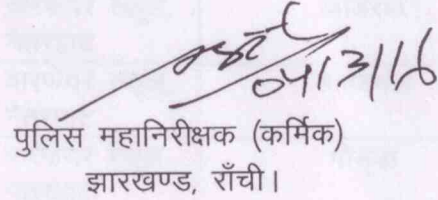 04/3/16
पुलिस महानिरीक्षक (कर्मिक)
झारखण्ड, राँची।